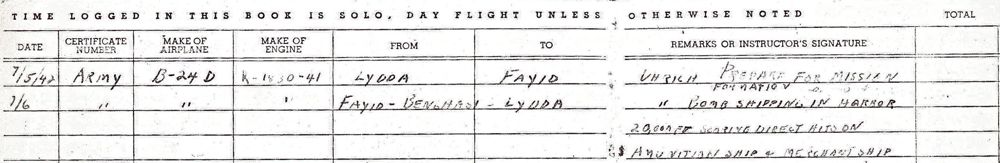 TIME LOGGED IN THIS BOOK IS SOLO, DAY FLIGHT UNLESS OTHERWISE NOTED TOTAL
DATE CERTIFICATE NUMBER MAKE OF AIRPLANE MAKE OF ENGINE FROM TO REMARKS OR INSTRUCTOR'S SIGNATURE
7/5/42 ARMY B-24D R-1830-41 LYDDA FAYID UHRICH PREPARE FOR MISSION
FORMATION
7/6 " " " FAYID-BENGHASI-LYDDA " BOMB SHIPPING IN HARBOR
20,000 FT SCORIVE DIRECT HITS ON
SHIP & MERCHANT SHIP